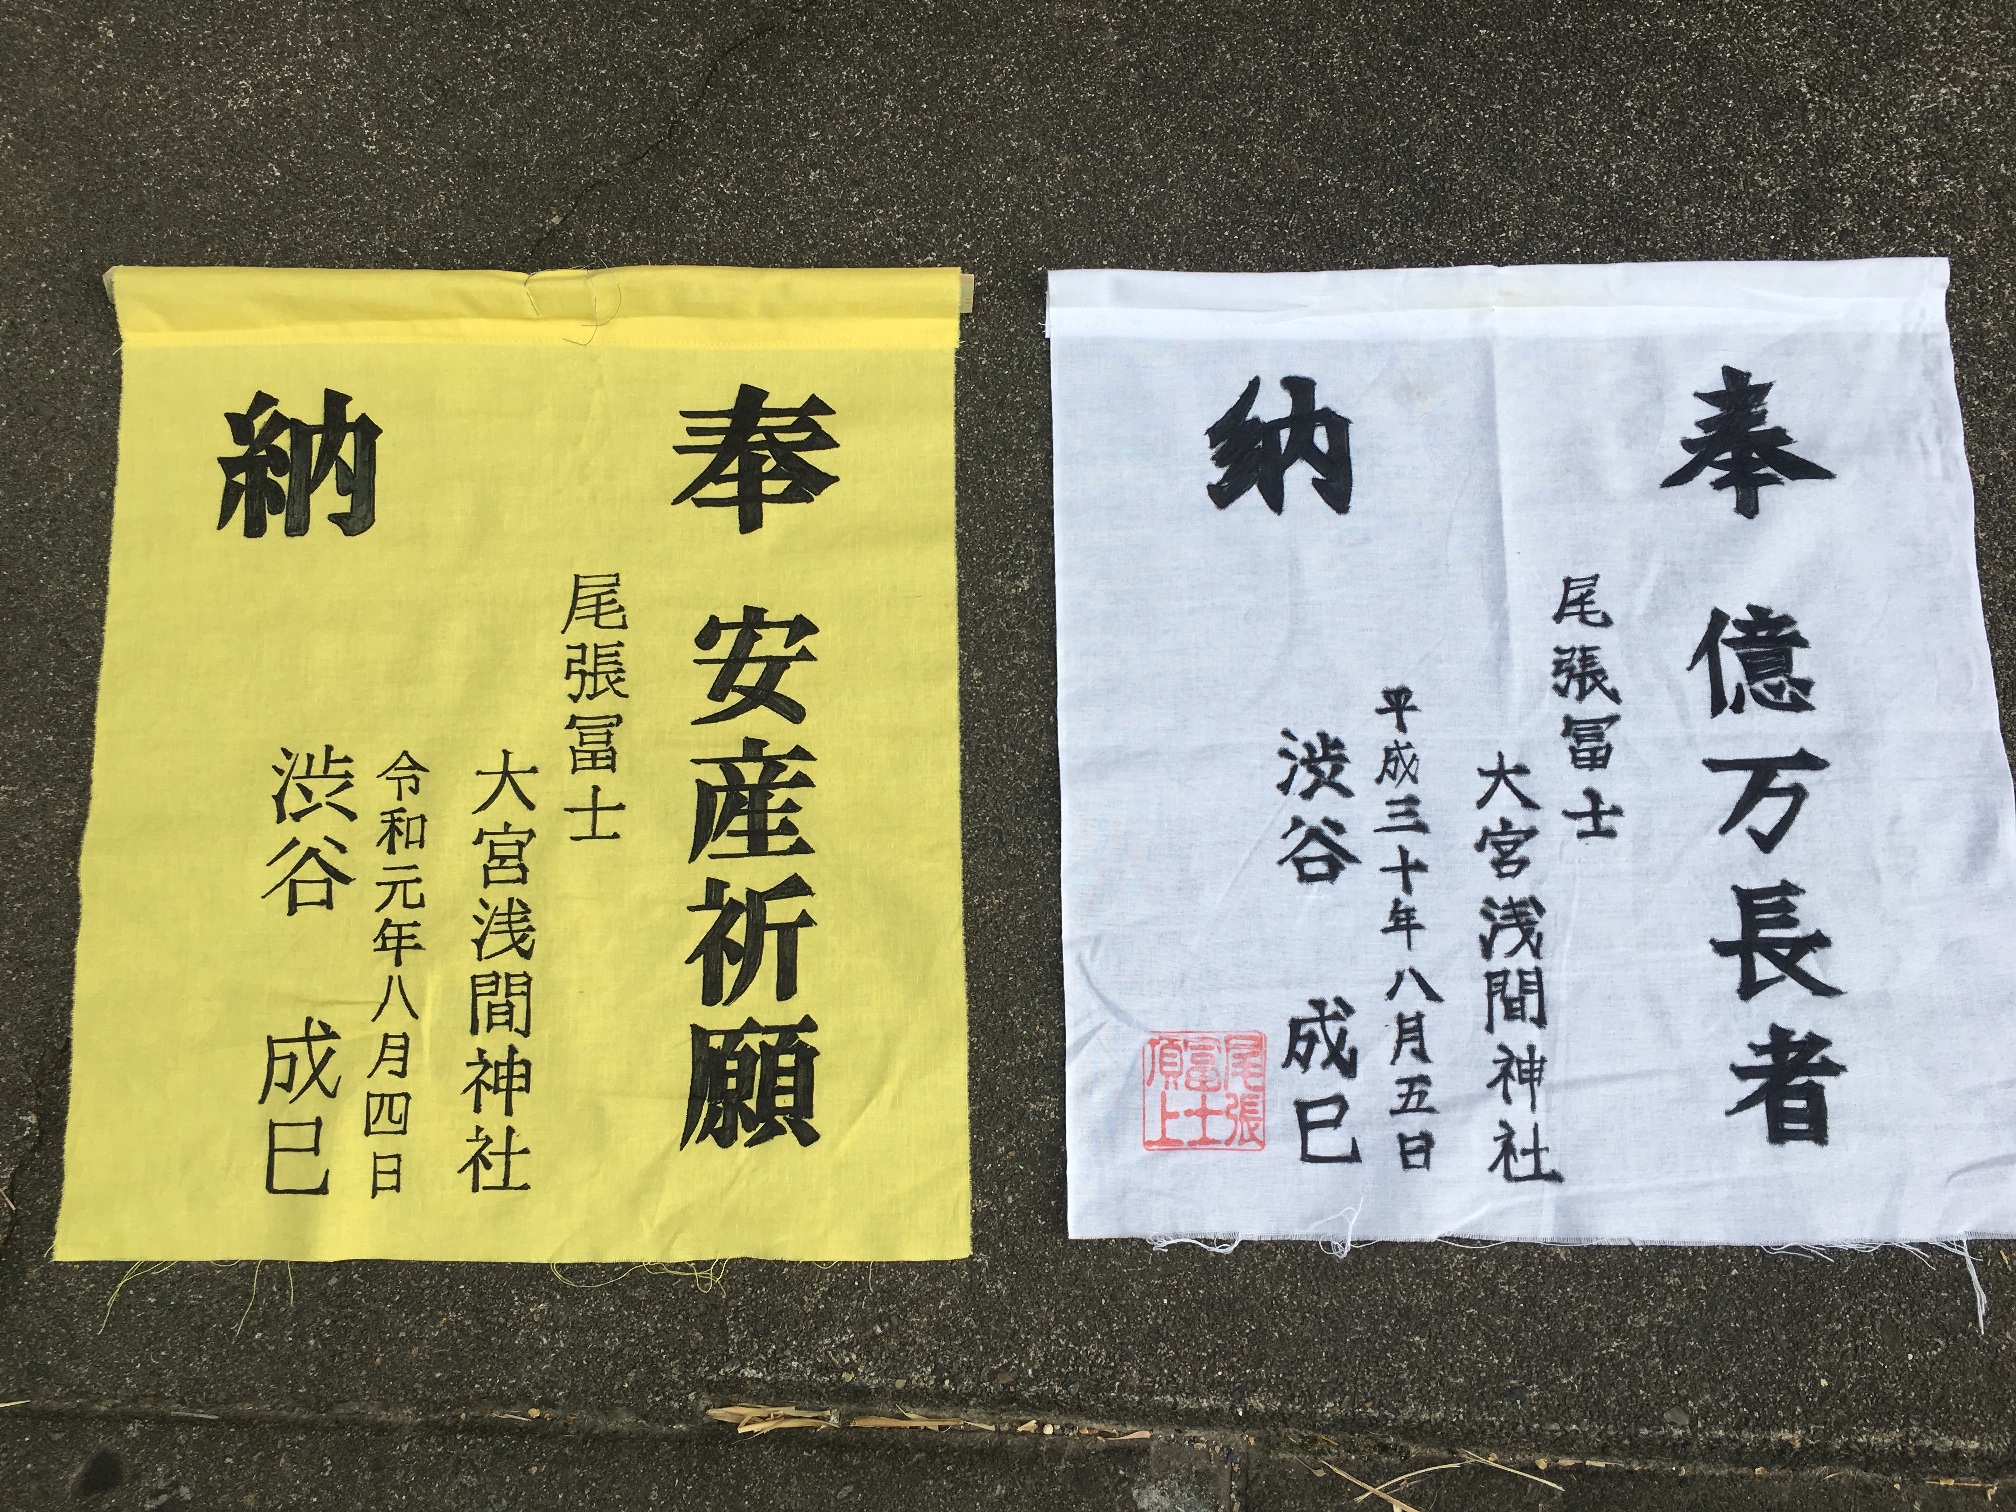 奉納
安産祈願
尾張冨士
大宮浅間神社
令和元年八月四日
渋谷 成巳
奉納
億万長者
尾張冨士
大宮浅間神社
平成三十年八月五日
渋谷 成巳
尾張
冨士
頂上